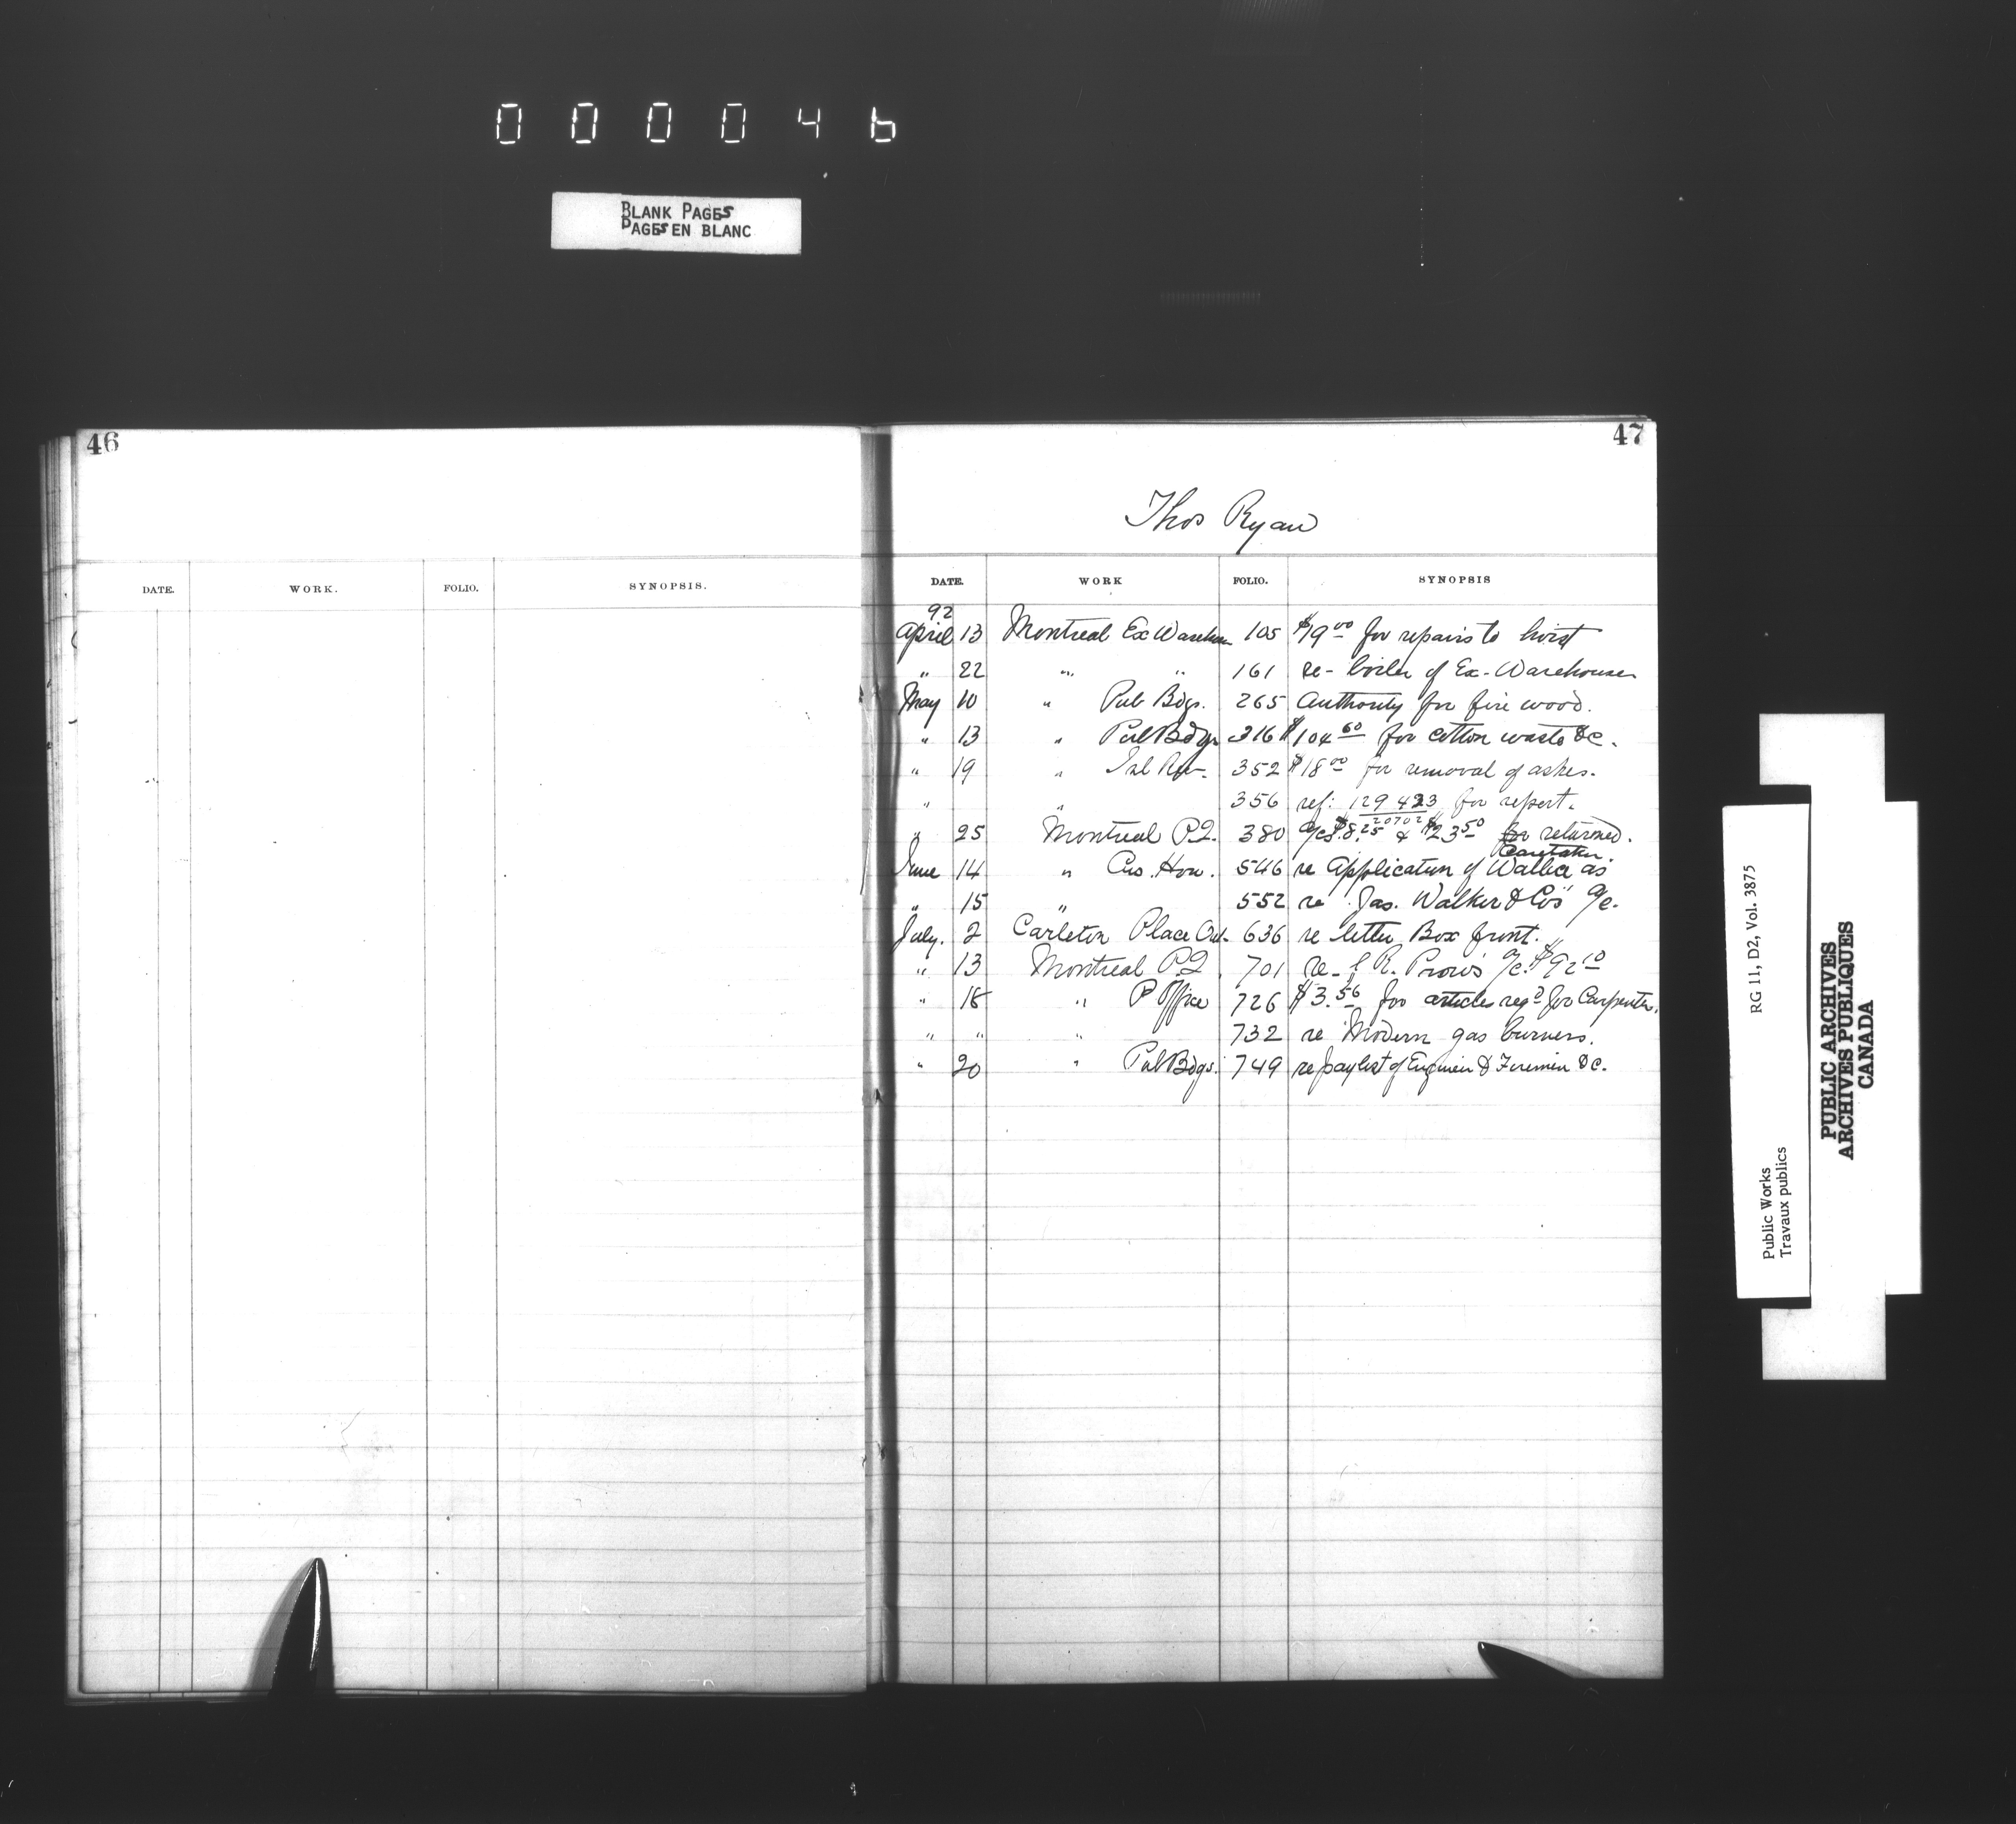 000046
BLANK PAGES
PAGES EN BLANC
46
DATE. WORK. FOLIO. SYNOPSIS.
47
Thos Ryan
DATE. WORK FOLIO. SYNOPSIS
92
April 13 Montreal Ex Warehou 105 $19 00 for repairs to hoist
" 22 " " 161 re- boiler of Ex-Warehouse
May 10 " Pub Bdgs. 265 Authority for fire wood.
" 13 " Pub Bdgs 316 $104 60 for cotton waste &c.
" 19 " Inl Rev. 352 $18 00 for removal of ashes.
" " 356 ref: 129423 for report.
20702
" 25 Montreal P.Q. 380 a/cs $8.25 & $23 50 returned.
Caretaker.
June 14 " Cus. Hou. 546 re Application of Walker as
" 15 " 552 re Jas. Walker & Co's a/c.
July. 2 Carleton Place Ont. 636 re letter Box front.
" 13 Montreal P.Q. 701 re- R. Prow's a/c. $92 10
" 18 " P Office 726 $3.56 for articles reqd for Carpenter.
" " " 732 re Modern gas burners.
" 20 " Pub Bdgs. 749 re paylist of Engineer & Firemen &c.
Public Works
Travaux publics
RG 11, D2, Vol. 3875
PUBLIC ARCHIVES
ARCHIVES PUBLIQUES
CANADA